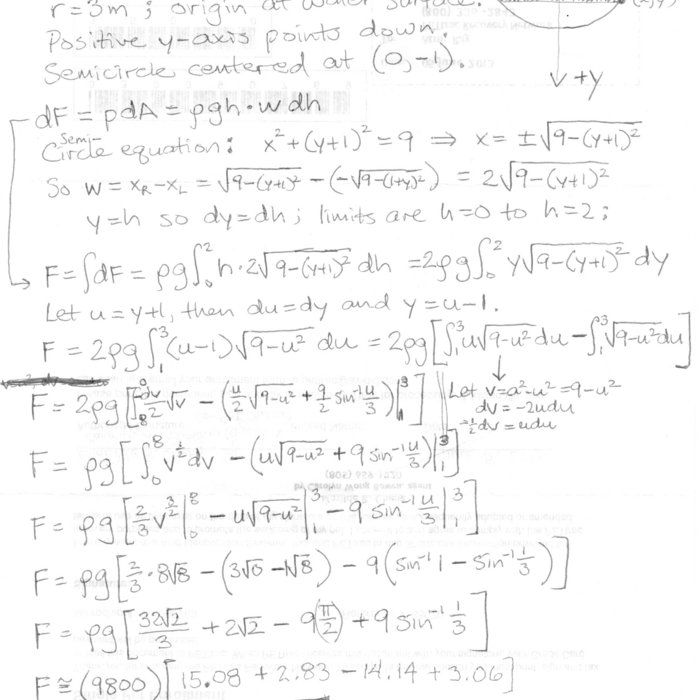 r=3m ; origin at water surface.
Positive y-axis points down.
Semicircle centered at (0,-1).
+y
dF = pdA = ρgh·w dh
Semi-
Circle equation: x²+(y+1)²=9 ⇒ x= ±√(9-(y+1)²)
So w = x_R-x_L = √(9-(y+1)²) - (-√(9-(1+y)²)) = 2√(9-(y+1)²)
y=h so dy=dh; limits are h=0 to h=2;
F=∫dF = ρg∫₀² h·2√(9-(y+1)²) dh =2ρg∫₀² y√(9-(y+1)²) dy
Let u=y+1, then du=dy and y=u-1.
F = 2ρg ∫₁³(u-1)√(9-u²) du = 2ρg[∫₁³u√(9-u²) du - ∫₁³√(9-u²) du]
Let v=a²-u²=9-u²
dv = -2udu
-½dv = udu
F = 2ρg[∫₈⁰ -dv/2 √v - (u/2 √(9-u²) + 9/2 sin⁻¹ u/3)|₁³]
F = ρg[∫₀⁸ v^½ dv - (u√(9-u²) + 9 sin⁻¹ u/3)|₁³]
F = ρg[⅔v^(3/2)|₀⁸ - u√(9-u²)|₁³ - 9 sin⁻¹ u/3|₁³]
F = ρg[⅔·8√8 - (3√0 - 1√8) - 9(sin⁻¹ 1 - sin⁻¹ ⅓)]
F = ρg[32√2/3 + 2√2 - 9(π/2) + 9 sin⁻¹ ⅓]
F ≅ (9800)[15.08 + 2.83 - 14.14 + 3.06]